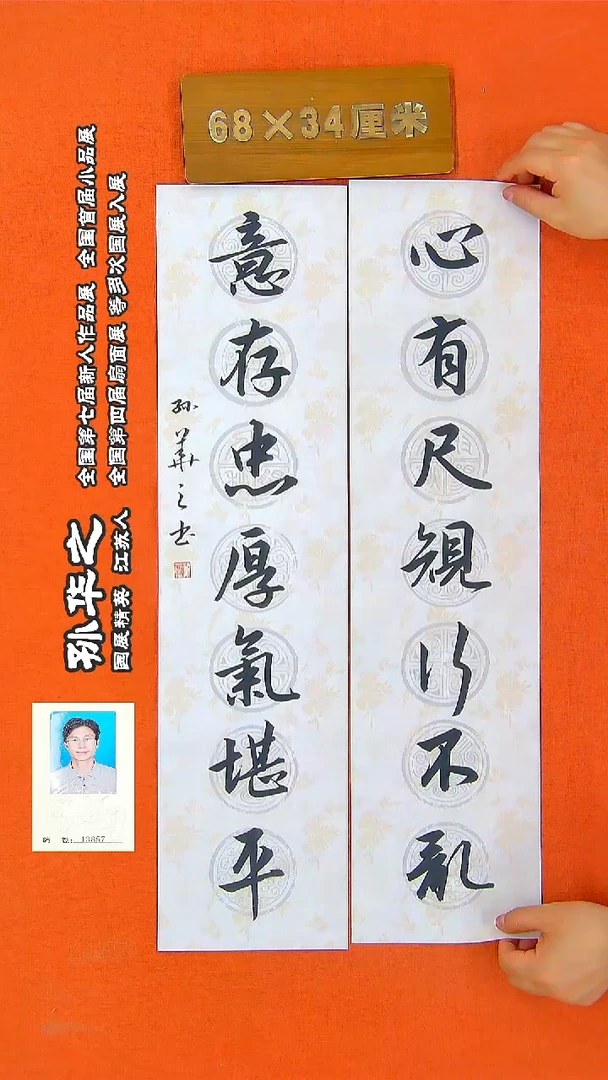 68×34厘米
心有尺規行不亂
意存忠厚氣堪平
孙華之书
孙华之
国展精英 江苏人
全国第七届新人作品展 全国首届小品展
全国第四届扇面展 等多次国展入展
13857